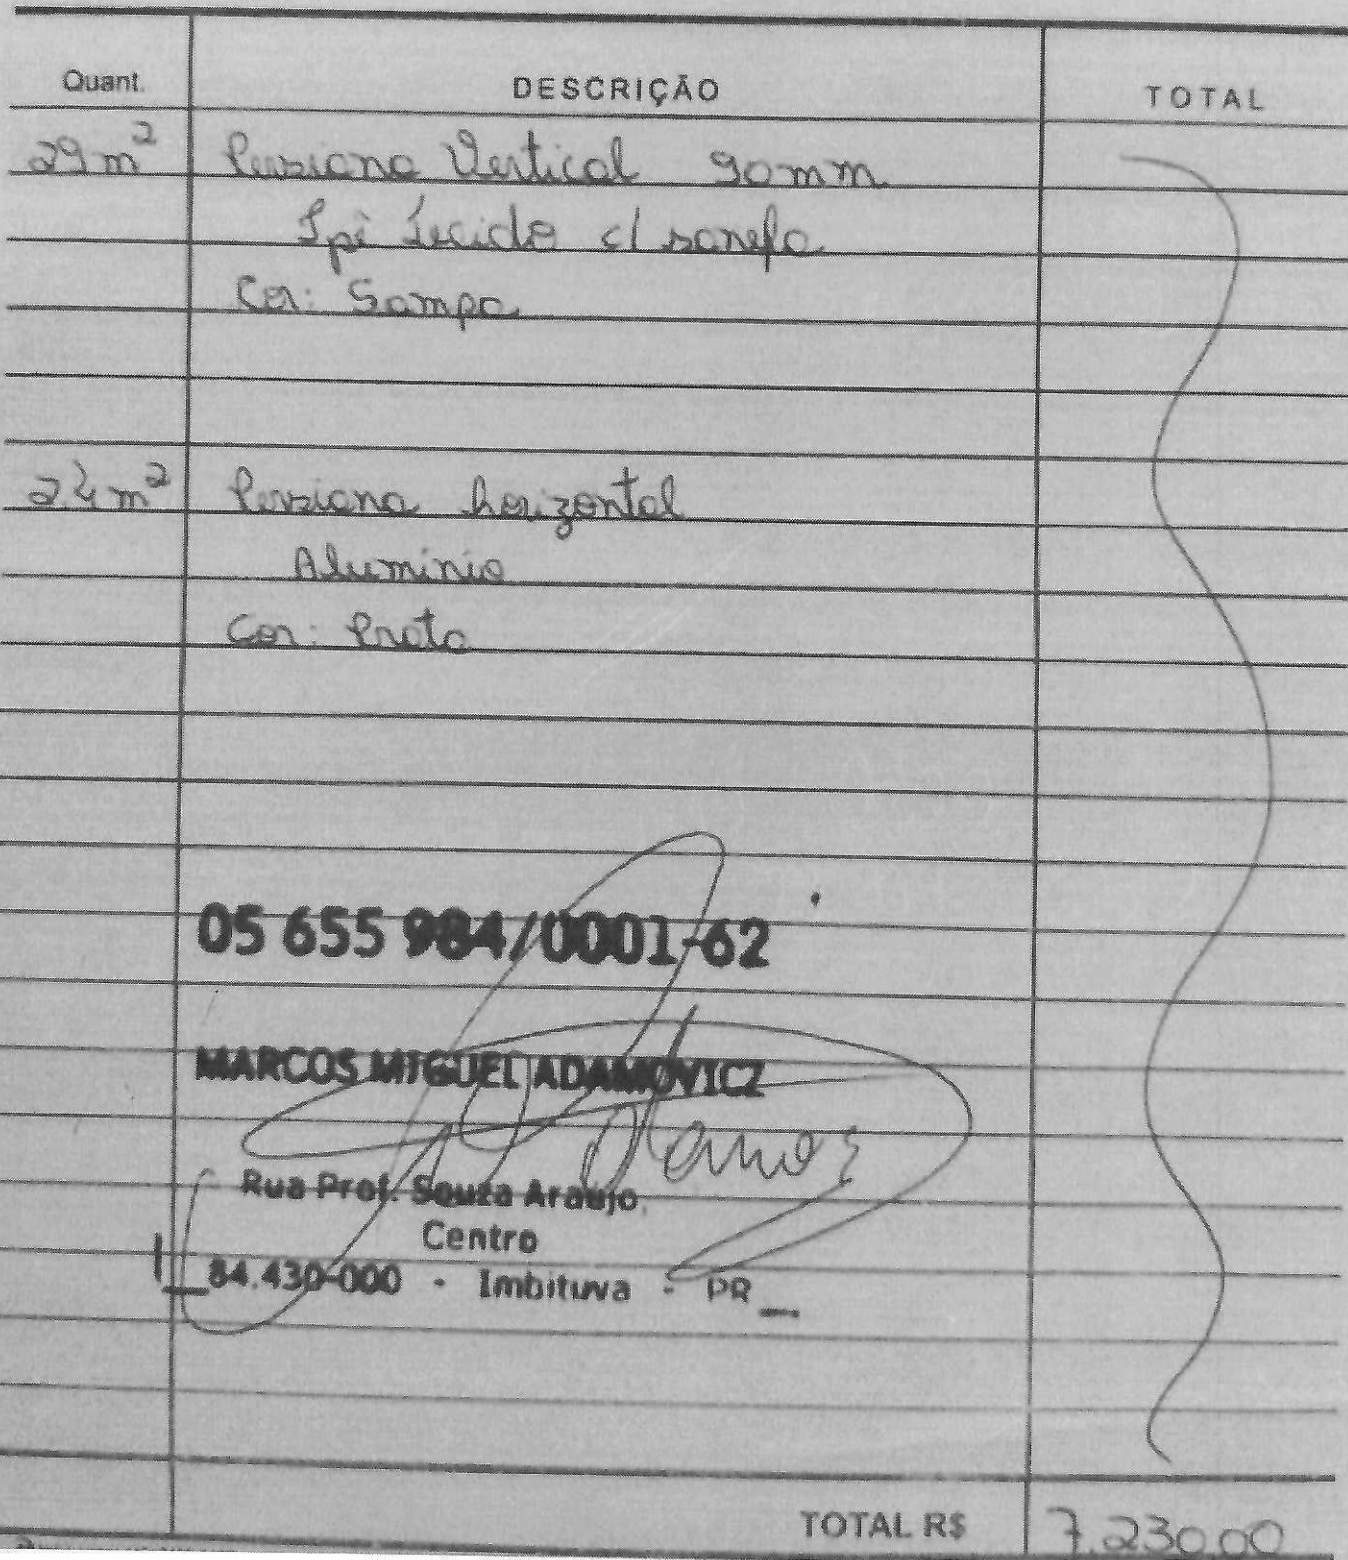 Quant. DESCRIÇÃO TOTAL
29 m² Persiana Vertical 90mm
Ipê Tecido c/ sanefa
Cor: Sampa
24 m² Persiana horizontal
Aluminio
Cor: Prata
05 655 984/0001-62
MARCOS MIGUEL ADAMOVICZ
Rua Prof. Souza Araujo,
Centro
84.430-000 - Imbituva - PR
TOTAL R$ 7.230,00